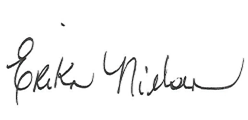 Erika Nielsen